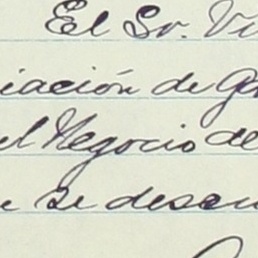 El Sr. Vi
iación de Ga
el Negocio de
e se desen